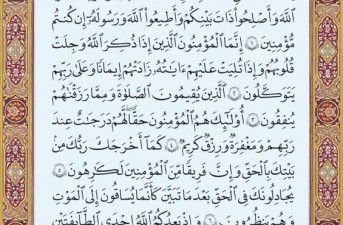 ٱللَّهَ وَأَصْلِحُوا۟ ذَاتَ بَيْنِكُمْ وَأَطِيعُوا۟ ٱللَّهَ وَرَسُولَهُۥٓ إِن كُنتُم
مُّؤْمِنِينَ ۝١ إِنَّمَا ٱلْمُؤْمِنُونَ ٱلَّذِينَ إِذَا ذُكِرَ ٱللَّهُ وَجِلَتْ
قُلُوبُهُمْ وَإِذَا تُلِيَتْ عَلَيْهِمْ ءَايَٰتُهُۥ زَادَتْهُمْ إِيمَٰنًا وَعَلَىٰ رَبِّهِمْ
يَتَوَكَّلُونَ ۝٢ ٱلَّذِينَ يُقِيمُونَ ٱلصَّلَوٰةَ وَمِمَّا رَزَقْنَٰهُمْ
يُنفِقُونَ ۝٣ أُو۟لَٰٓئِكَ هُمُ ٱلْمُؤْمِنُونَ حَقًّا لَّهُمْ دَرَجَٰتٌ عِندَ
رَبِّهِمْ وَمَغْفِرَةٌ وَرِزْقٌ كَرِيمٌ ۝٤ كَمَآ أَخْرَجَكَ رَبُّكَ مِنۢ
بَيْتِكَ بِٱلْحَقِّ وَإِنَّ فَرِيقًا مِّنَ ٱلْمُؤْمِنِينَ لَكَٰرِهُونَ ۝٥
يُجَٰدِلُونَكَ فِى ٱلْحَقِّ بَعْدَ مَا تَبَيَّنَ كَأَنَّمَا يُسَاقُونَ إِلَى ٱلْمَوْتِ
وَهُمْ يَنظُرُونَ ۝٦ وَإِذْ يَعِدُكُمُ ٱللَّهُ إِحْدَى ٱلطَّآئِفَتَيْنِ